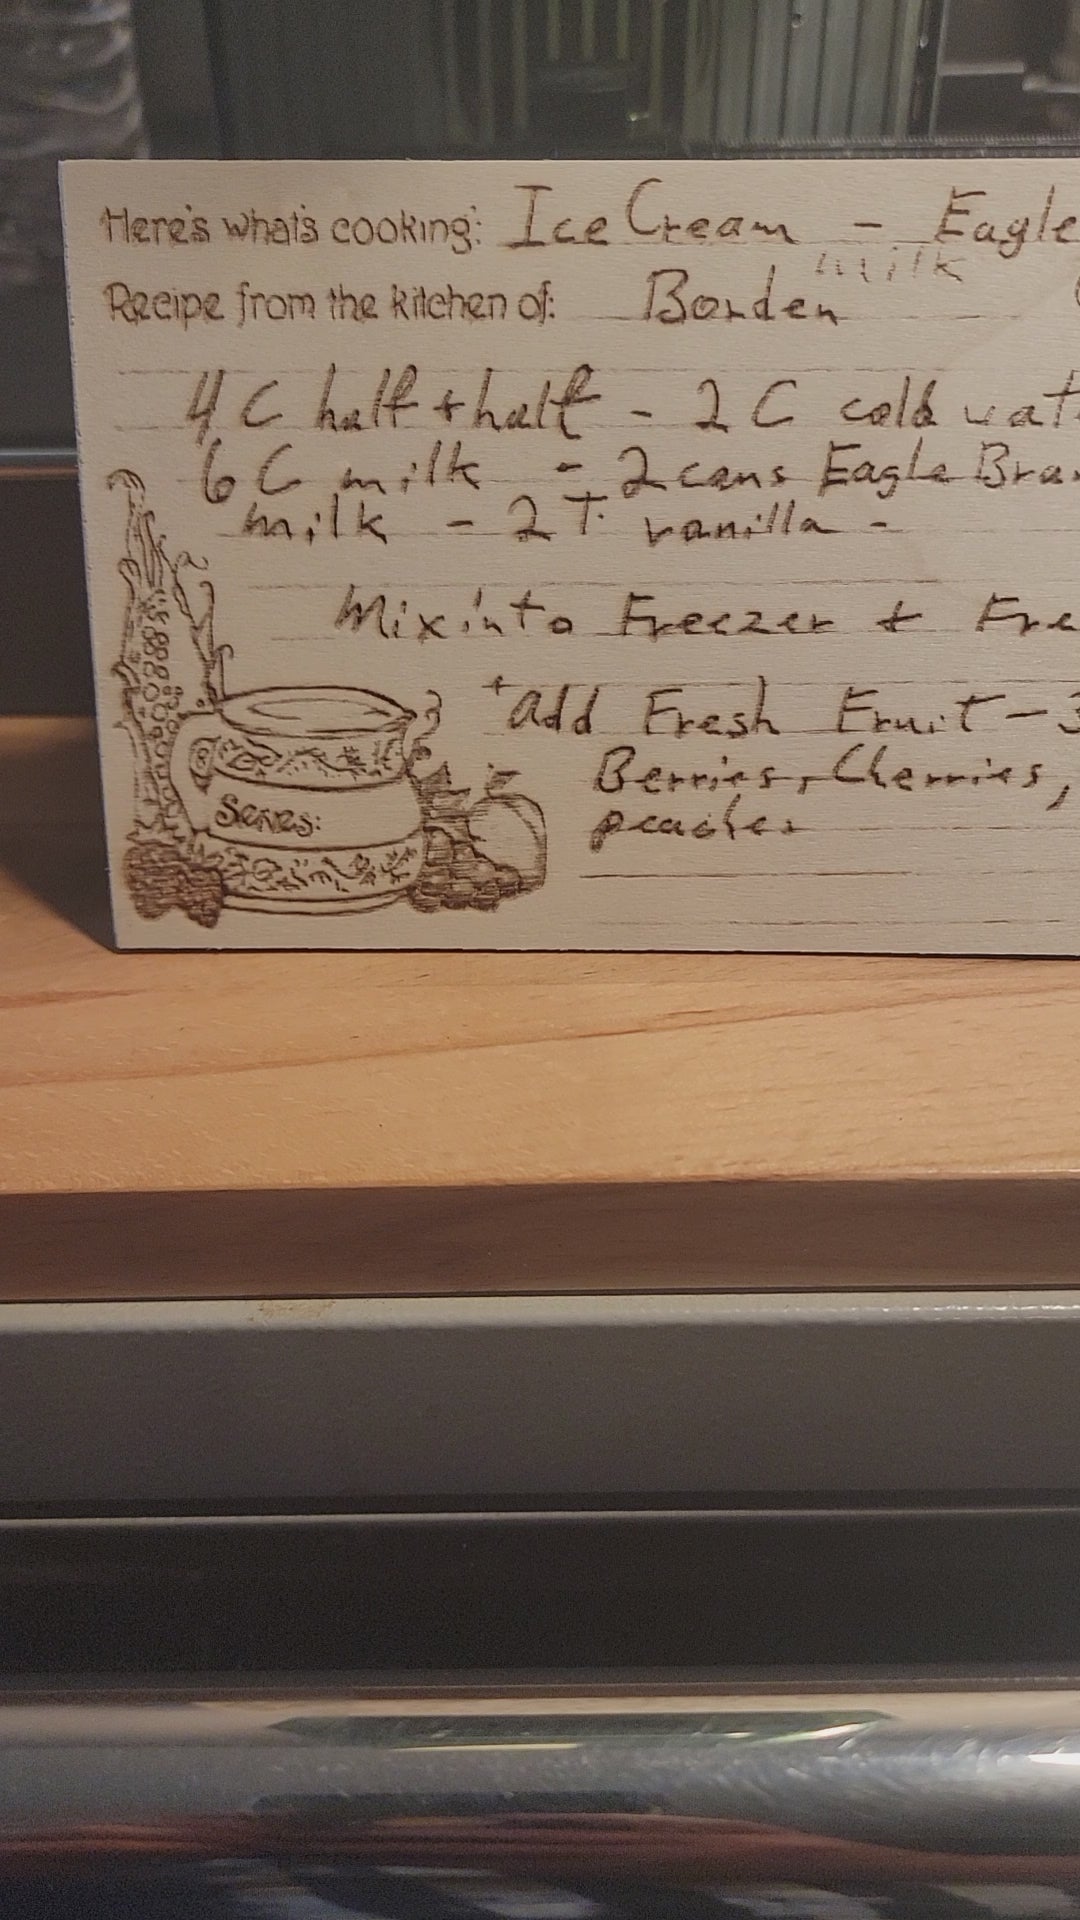 Here's what's cooking: Ice Cream - Eagle
milk
Recipe from the kitchen of: Borden
4 C half + half - 2 C cold wat
6 C milk - 2 cans Eagle Bra
milk - 2 T. vanilla -
Mix into Freezer + Fre
+ add Fresh Fruit - 3
Berries, Cherries,
peaches
Serves: